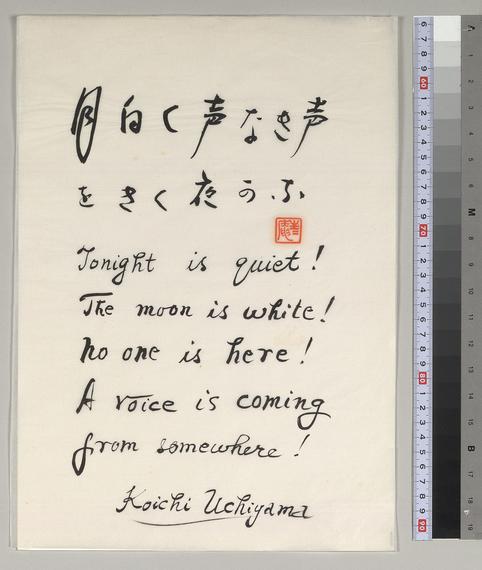 月白く声なき声
をきく夜かな
Tonight is quiet!
The moon is white!
no one is here!
A voice is coming
from somewhere!
Koichi Uchiyama